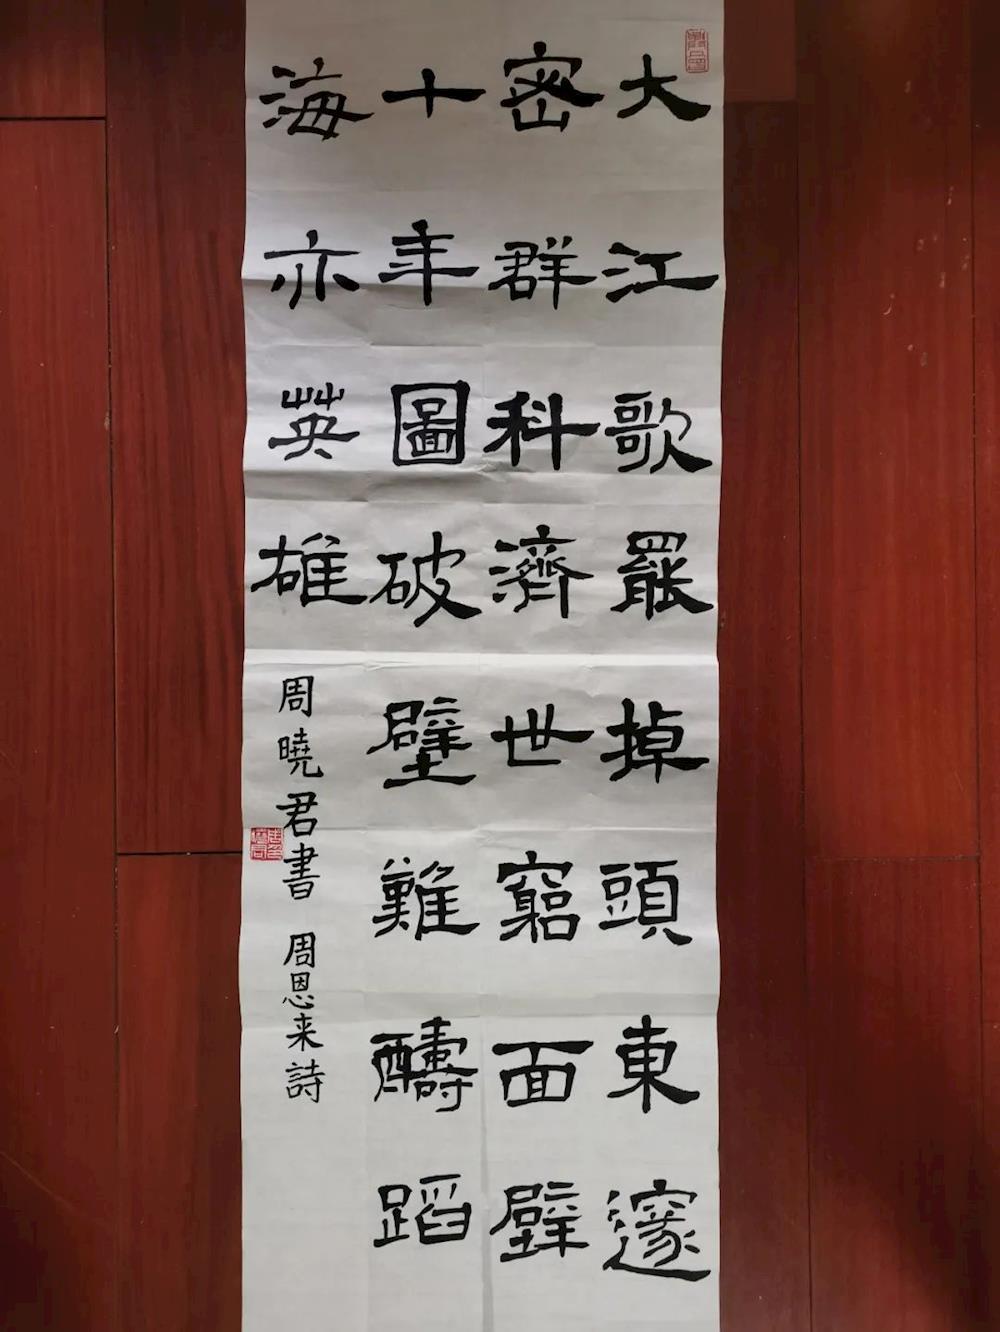 大江歌罷掉頭東邃
密群科濟世窮面壁
十年圖破壁難醻蹈
海亦英雄
周曉君書 周恩来詩